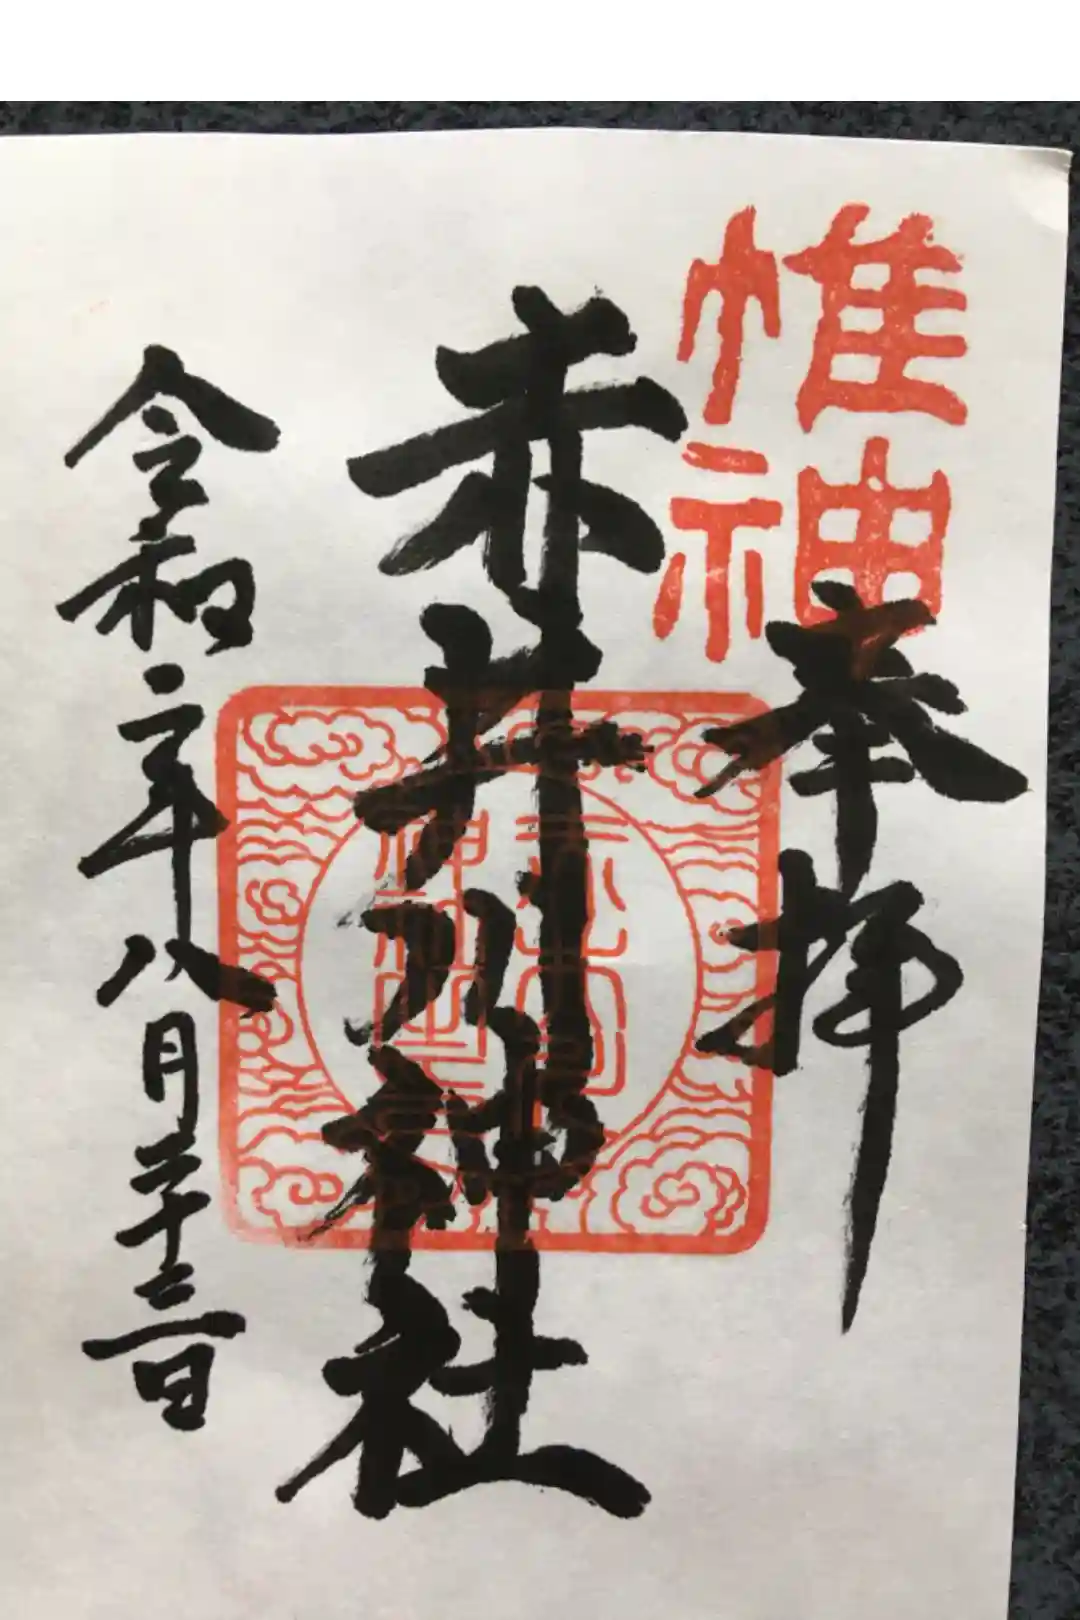 惟神
奉拝
赤井川神社
令和二年八月二十三日